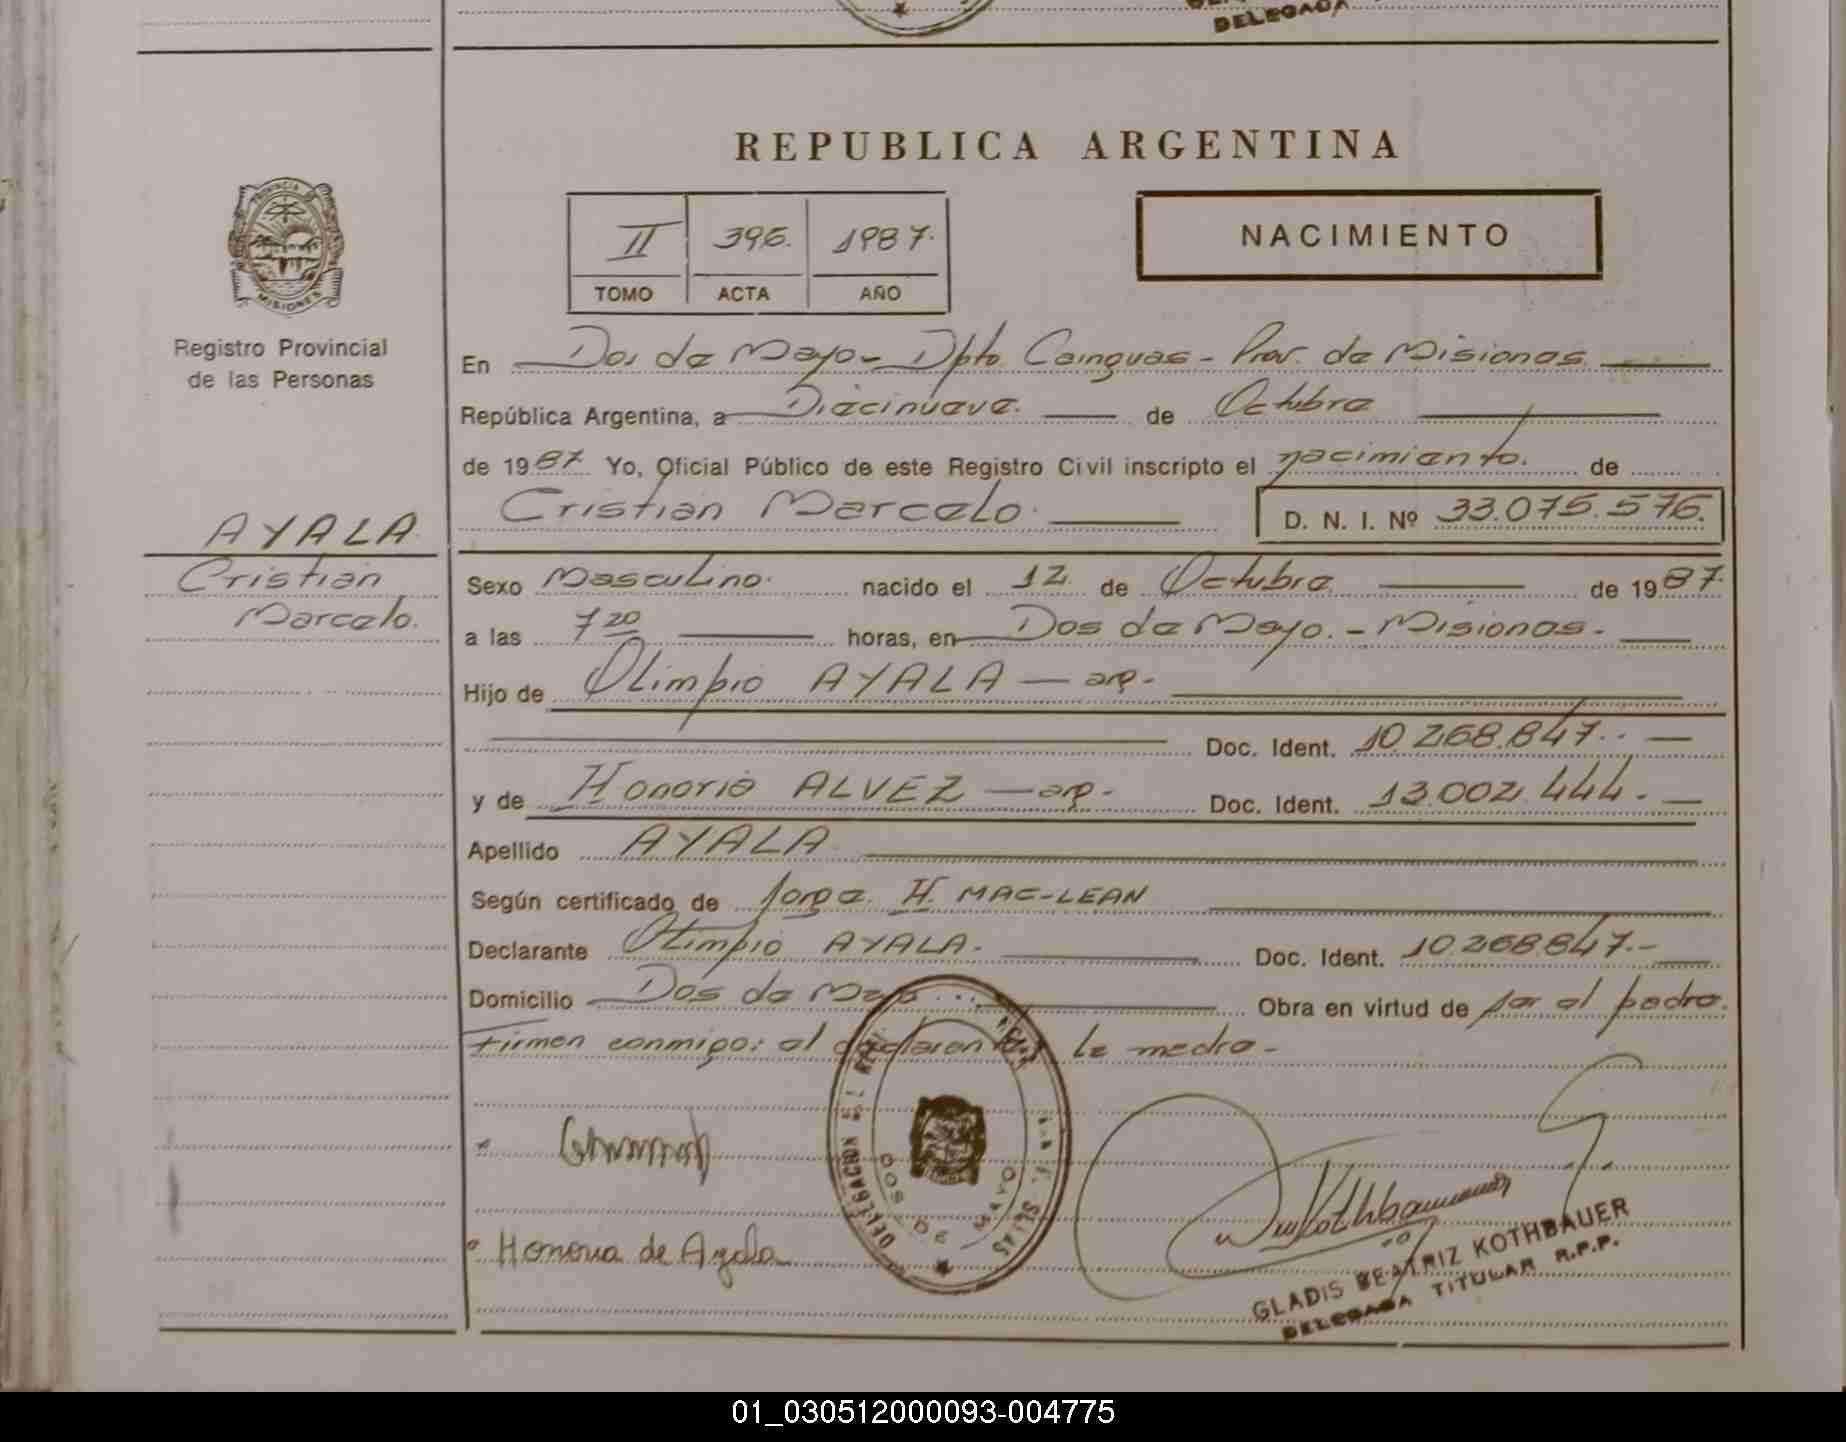 DELEGADA
REPUBLICA ARGENTINA
PROVINCIA DE
MISIONES
Registro Provincial
de las Personas
II 396. 1987.
TOMO ACTA AÑO
NACIMIENTO
En Dos de Mayo - Dpto. Cainguas - Prov. de Misiones
República Argentina, a Diecinueve. de Octubre
de 1987 Yo, Oficial Público de este Registro Civil inscripto el nacimiento. de
Cristian Marcelo. D. N. I. Nº 33.075.576.
AYALA
Cristian
Marcelo.
Sexo Masculino. nacido el 12 de Octubre de 1987.
a las 7 20 horas, en Dos de Mayo. - Misiones.
Hijo de Olimpio AYALA — arg.
Doc. Ident. 10.268.847.
y de Honoria ALVEZ — arg. Doc. Ident. 13.002.444.
Apellido AYALA
Según certificado de Jorge H. MAC-LEAN
Declarante Olimpio AYALA. Doc. Ident. 10.268.847.
Domicilio Dos de Mayo Obra en virtud de ser el padre.
Firman conmigo: el declarante la madre -
DOS DE MAYO
Honoria de Ayala
Kothbauer
GLADIS BEATRIZ KOTHBAUER
DELEGADA TITULAR R.P.P.
01_030512000093-004775